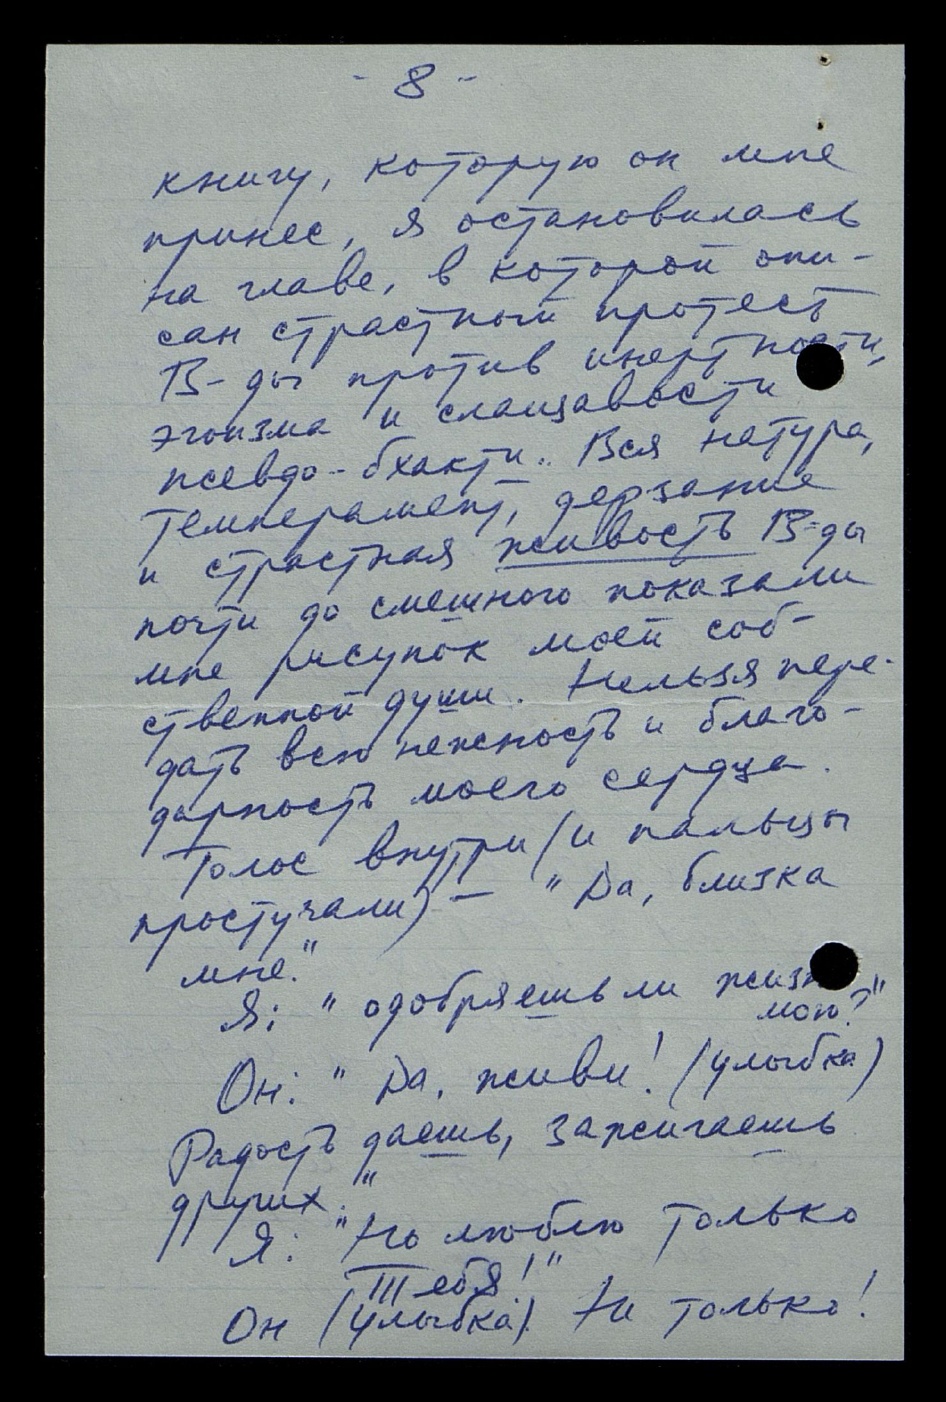 - 8 -
книгу, которую он мне
принес, я остановилась
на главе, в которой опи-
сан страстный протест
В-ды против инертности,
эгоизма и слащавости
псевдо-бхакти.. Вся натура,
темперамент, дерзание
и страстная живость В-ды
почти до смешного показали
мне рисунок моей соб-
ственной души. Нельзя пере-
дать всю нежность и благо-
дарность моего сердца.
Голос внутри (и пальцы
простучали) — "Да, близка
мне."
Я: "одобряешь ли жизнь
мою?"
Он: "Да, живи! (улыбка)
Радость даешь, зажигаешь
других."
Я: "Но люблю только
Тебя!"
Он (улыбка). Не только!